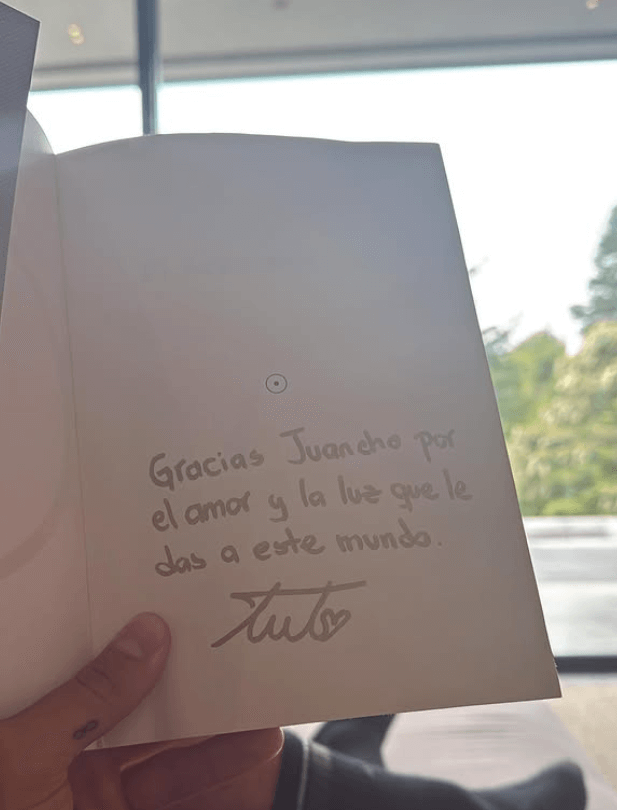 Gracias Juancho por
el amor y la luz que le
das a este mundo.
Tuto